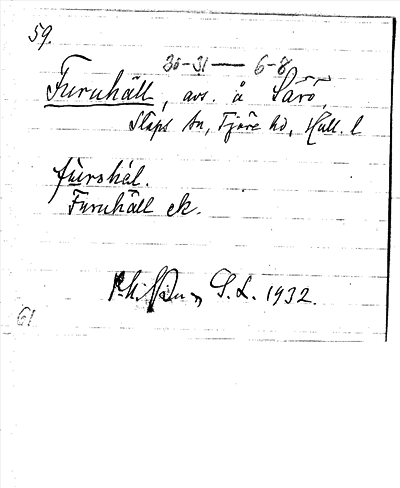 59.
30-31 — 6-8
Furuhäll, avs. å Särö,
Släps sn, Fjäre hd, Hall. l
Furuhäll ek.
S.L. 1932.
61